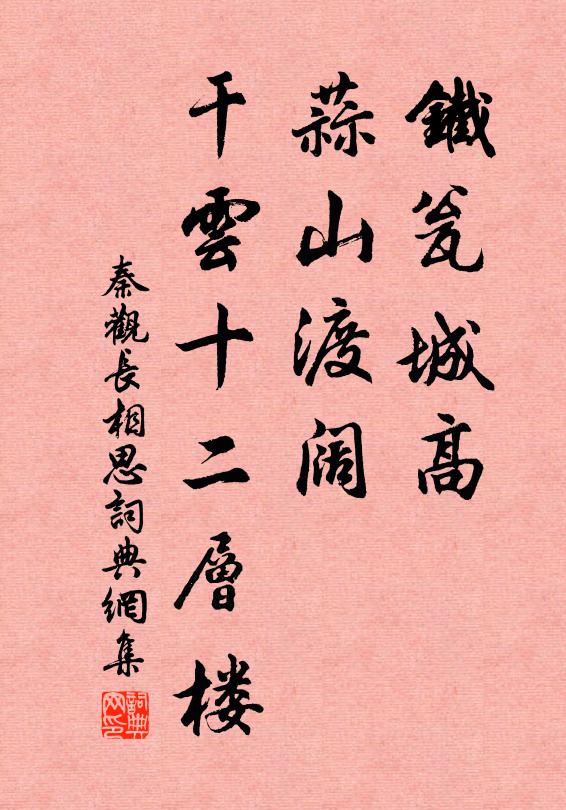 鐵瓮城高
蒜山渡阔
干雲十二層楼
秦觀長相思詞典網集
詞典网印